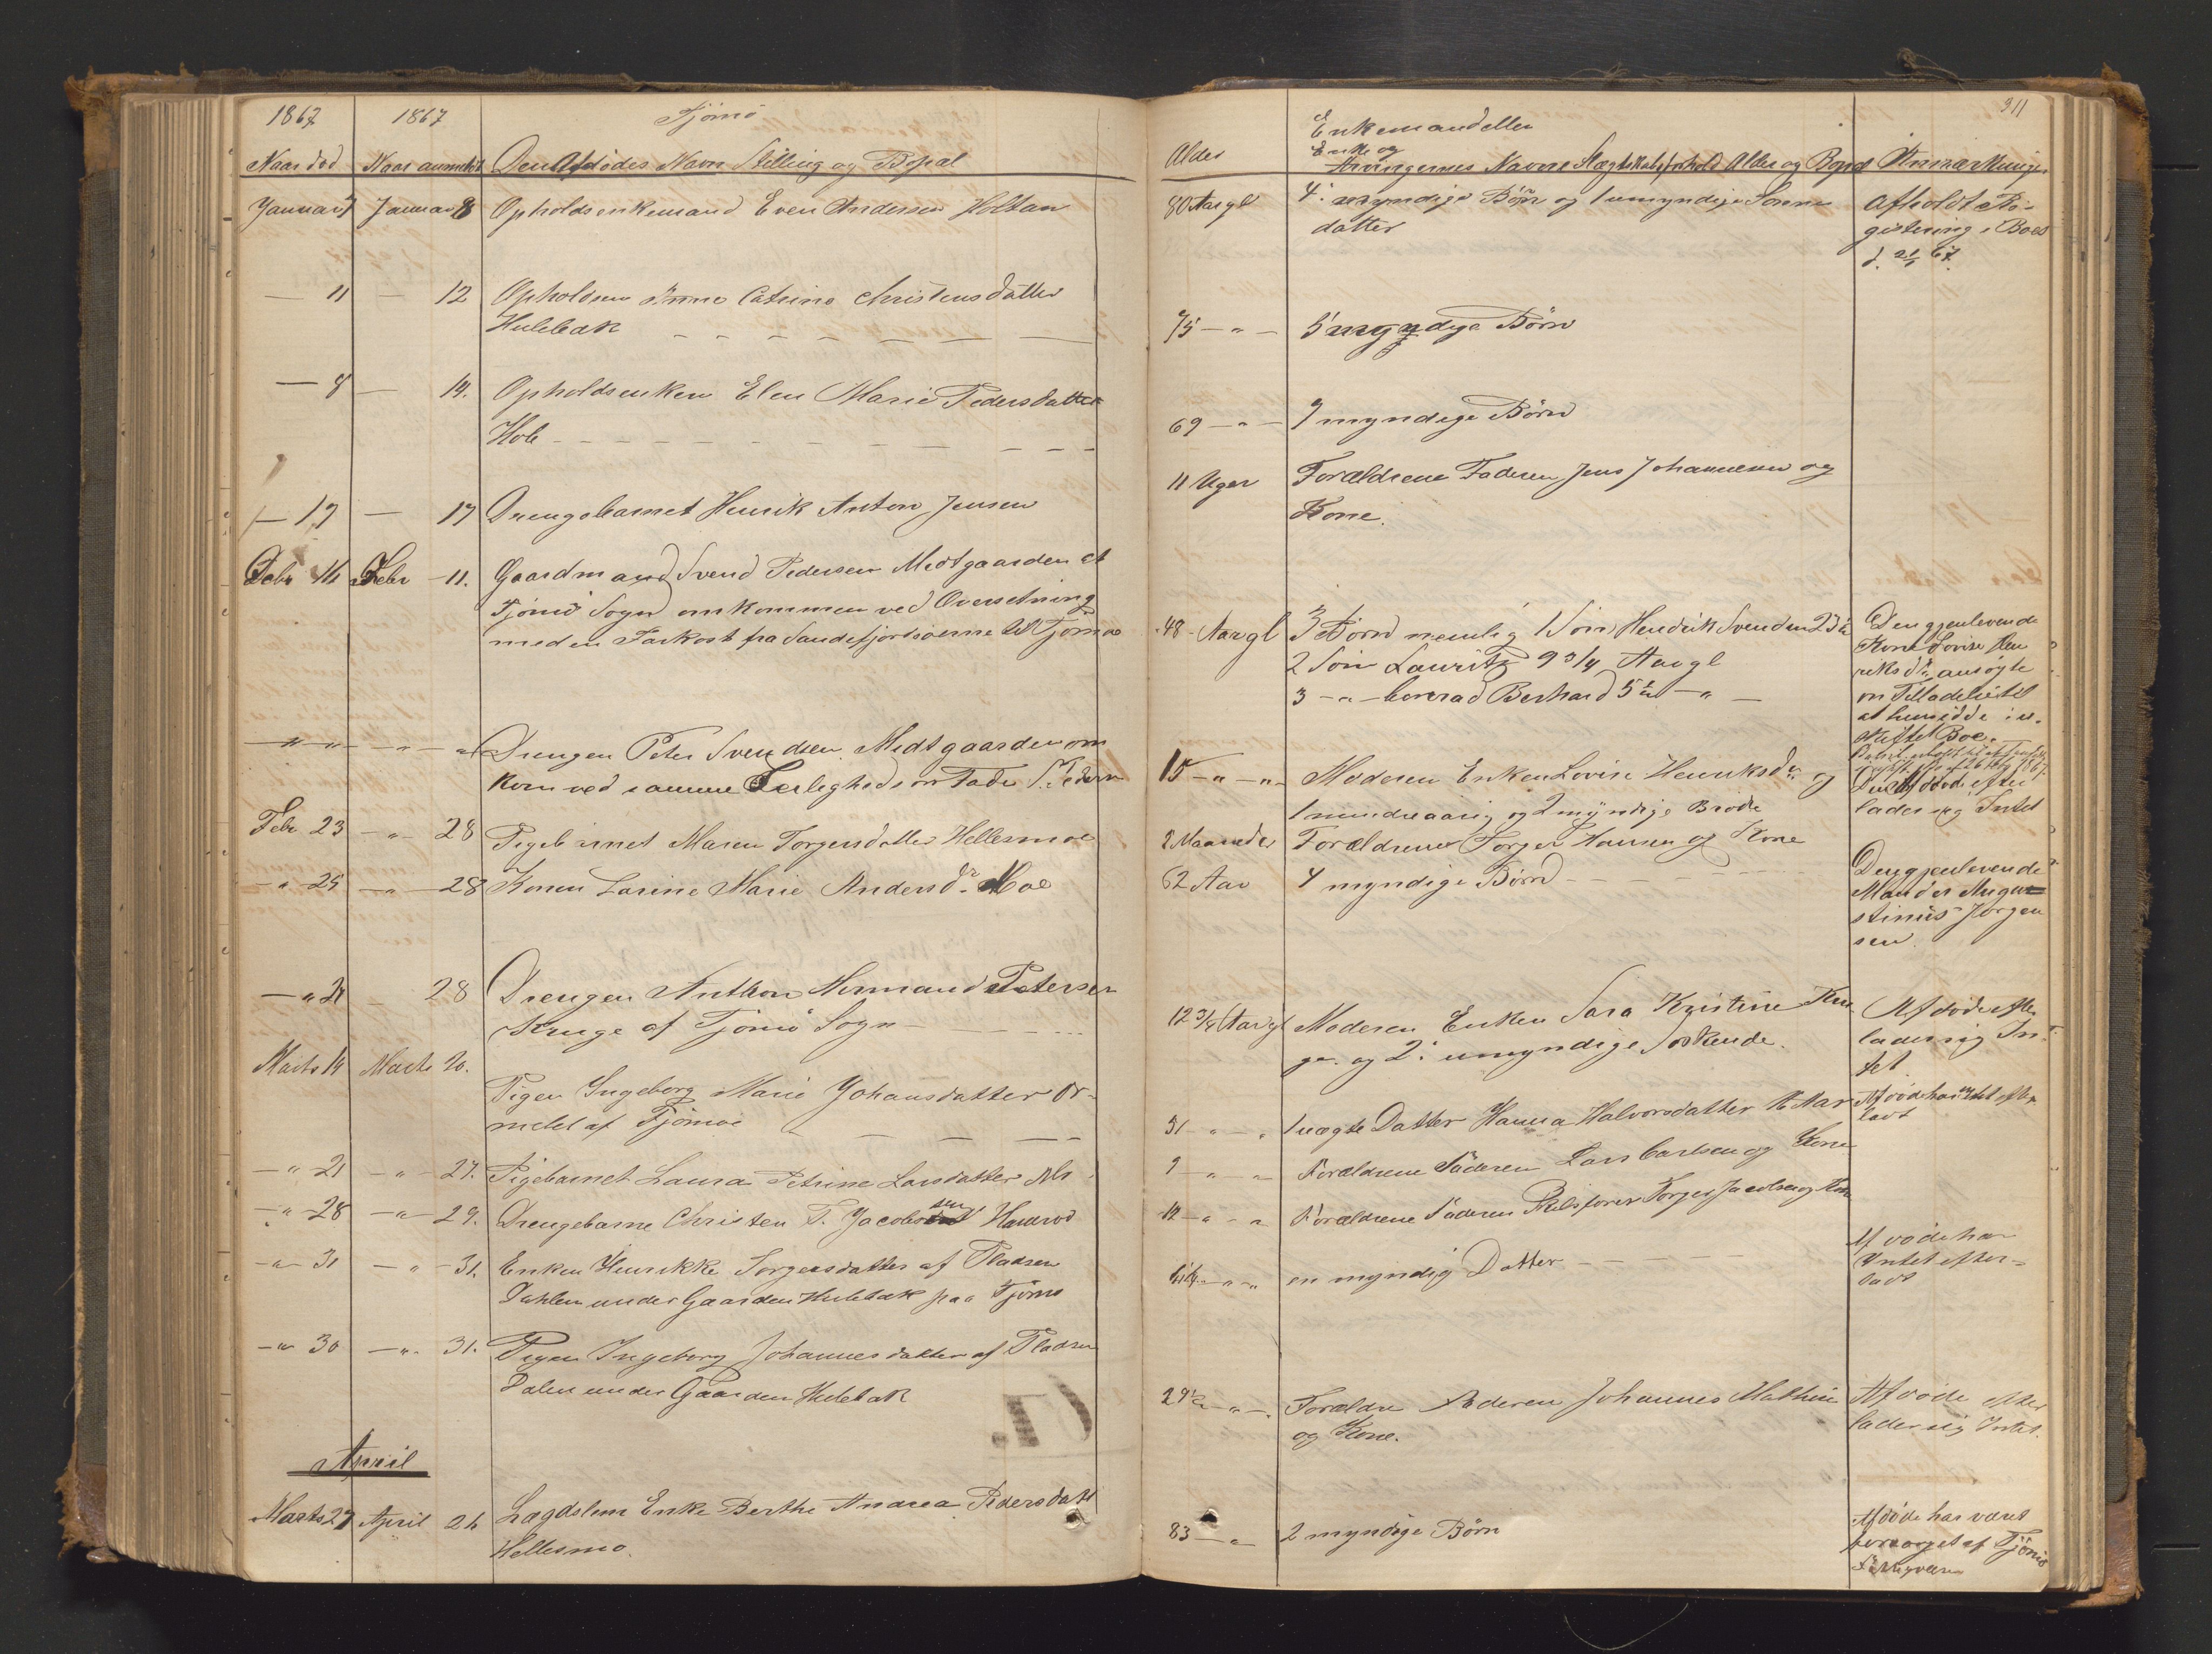 1867 1867 Tjømø
Naar død Naar anmeldt Den Afdødes Navn Stilling og Bopæl
Januar 7 Januar 8 Opholdsenkemand Even Andersen Holtan
— 11 — 12 Opholdsen Anne Catrine Christensdatter
Hulebak
— 8 — 14. Opholdsenken Elen Marie Pedersdatter
Hole
— 17 — 17 Drengebarnet Henrik Anton Jensen
Febr Febr 11. Gaardmand Svend Pedersen Midtgaarden af
Tjømø Sogn omkommen ved Oversetning
med en Farkost fra Sandefjordsøerne til Tjømø
— " — — " — Drengen Peter Svendsen Midtgaarden om
kom ved samme Leilighed som Fader S. Pedersen
Febr 23 — " — 28 Pigebarnet Maren Torgersdatter Hellesmoe
— " 25 — " — 28 Konen Larine Marie Andersdr. Moe
— " 28 Drengen Anthon Hermand Petersen
Kruge af Tjømø Sogn
Marts 14 Marts 20.
Pigen Ingeborg Marie Johansdatter Or-
melet af Tjømøe
— " 21 — " — 27. Pigebarnet Laura Petrine Larsdatter
— " 28 — " — 29. Drengebarne Christen T. Jacobsen
— " — 31 — " — 31. Enken Henrikke Torgersdatter af Pladsen
Dahlen under Gaarden Hulebak paa Tjømø
— " 30 — " 31. Pigen Ingeborg Johannesdatter af Pladsen
Dalen under Gaarden Hulebak
April
Marts 27 April 26 Lægdslem Enke Berthe Andrea Pedersdatt
Hellesmo.
311
Enkemand eller
Enke og
Alder Arvingernes Navne Slægtskabsforhold Alder og Bopæl Anmærkninger
80 Aar gl 4: myndige Børn og 1 umyndige Sønne
datter
Afholdt Re-
gistering i Boet
d. 21/1 67.
75 — " — 5 myndige Børn
69 — " — 7 myndige Børn
11 Uger Forældrene Faderen Jens Johannesen og
Kone.
48 Aar gl 3 Børn nemlig 1 Søn Hendrik Svendsen 23
2 Søn Lauritz 9 3/4 Aar gl
3 — " — Conrad Berhard 5 1/2 — " —
Den gjenlevende
Kone Lovise Hen
riksdr. ansøgte
om Tilladelse til
at hensidde i u-
skiftet Boe.
15 — " — " Moderen Enken Lovise Henriksdr. og
1 mindreaarig og 2 myndige Brødre
Den Afdøde efter
lader sig Intet
2 Maaneder Forældrene Torger Hansen og Kone
62 Aar 4 myndige Børn
Den gjenlevende
Mand er Augu=
stinius Jørgen
sen
12 3/4 Aar gl Moderen Enken Sara Kristine Kru-
ge. og 2: umyndige Søskende.
Afdøde efter
lader sig In-
tet.
31 — " — " 1 uægte Datter Hanna Halvorsdatter
Afdøde har intet efter
ladt
9 — " — " Forældrene Faderen Lars Carlsen og Kone
12 — " — " Forældrene Faderen Skibsfører Torger Jacobsen og Kone
— " — " en myndig Datter
Afdøde har
Intet efter=
ladt
29 1/2 — " — Forældre Faderen Johannes Mathis
og Kone.
Afdøde efter
lader sig Intet.
83 — " 2 myndige Børn
Afdøde har været
forsørget af Tjømø
Fattigvæsen